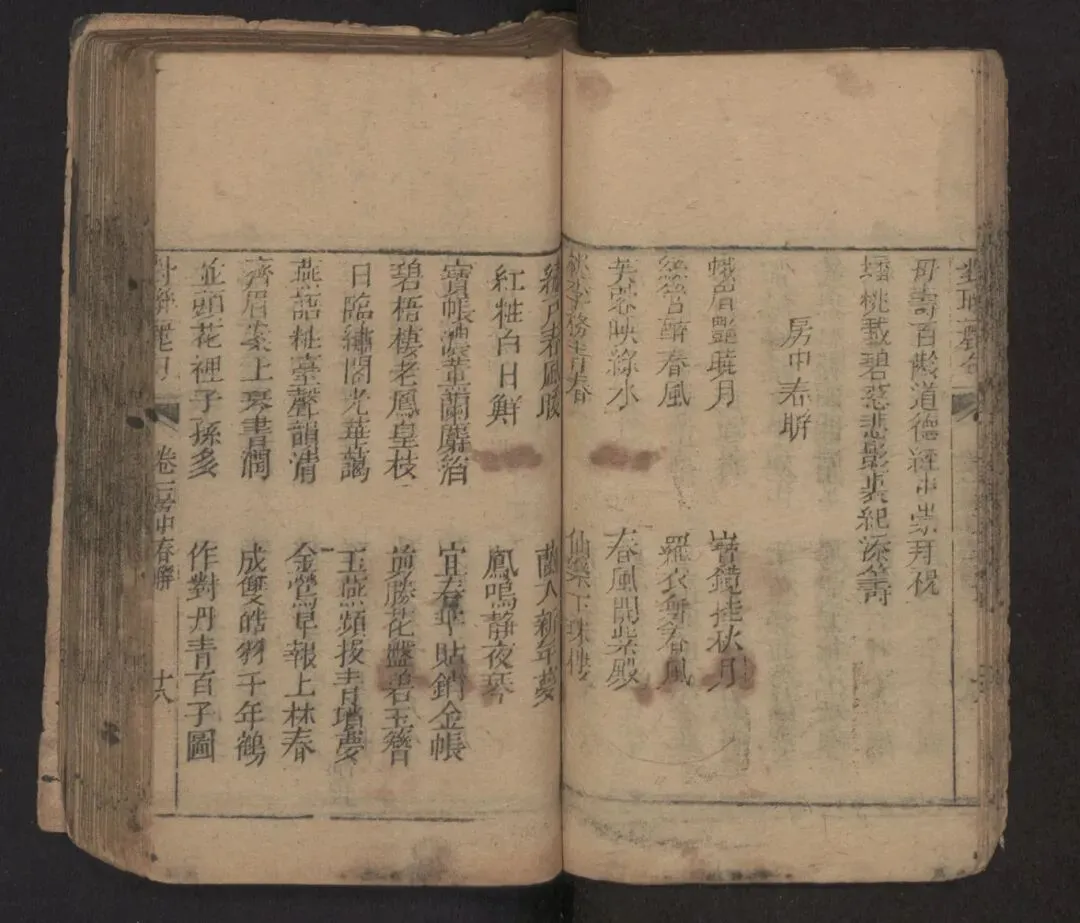 母壽百齡道德經中崇拜祝
蟠桃載碧慈悲影裏紀添籌
房中春聯
蛾眉艷曉月 寶鏡挂秋月
鶯管醉春風 羅衣舞春風
芙蓉映綠水 春風開紫殿
桃李務青春 仙樂下珠樓
綉戶春風暖 蘭入新年夢
紅粧白日鮮 鳳鳴靜夜琴
寶帳濃薰蘭麝治 宜春華貼銷金帳
碧梧棲老鳳皇枝 勝花盤碧玉簪
日臨繡閣光華藹 玉燕頻投青瑣夢
燕語粧臺聲韻清 金鶯早報上林春
齊眉案上琴書潤 成雙皓羽千年鶴
並頭花裡子孫多 作對丹青百子圖
卷二房中春聯 十八